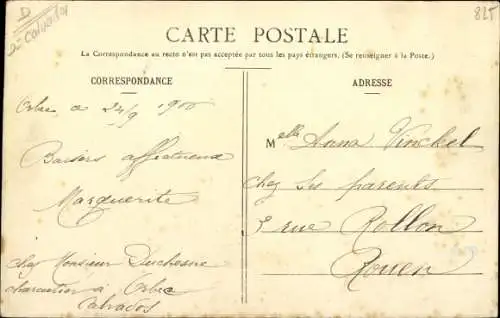 D
Calvados
825
CARTE POSTALE
La Correspondance au recto n'est pas acceptée par tous les pays étrangers. (Se renseigner à la Poste.)
CORRESPONDANCE
Orbec 24/9
Baisers affectueux
Marguerite
chez Monsieur Duchesne
charcutier à Orbec
Calvados
ADRESSE
Melle Anna Vinckel
chez ses parents
rue Rollon
Rouen